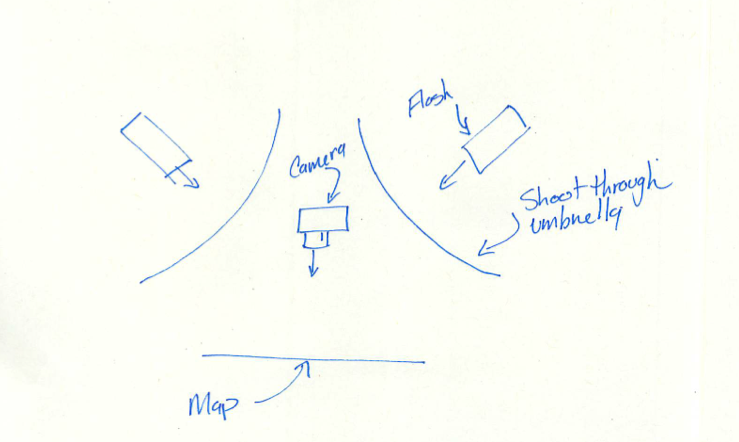 Flash
Camera
Shoot through
umbrella
Map